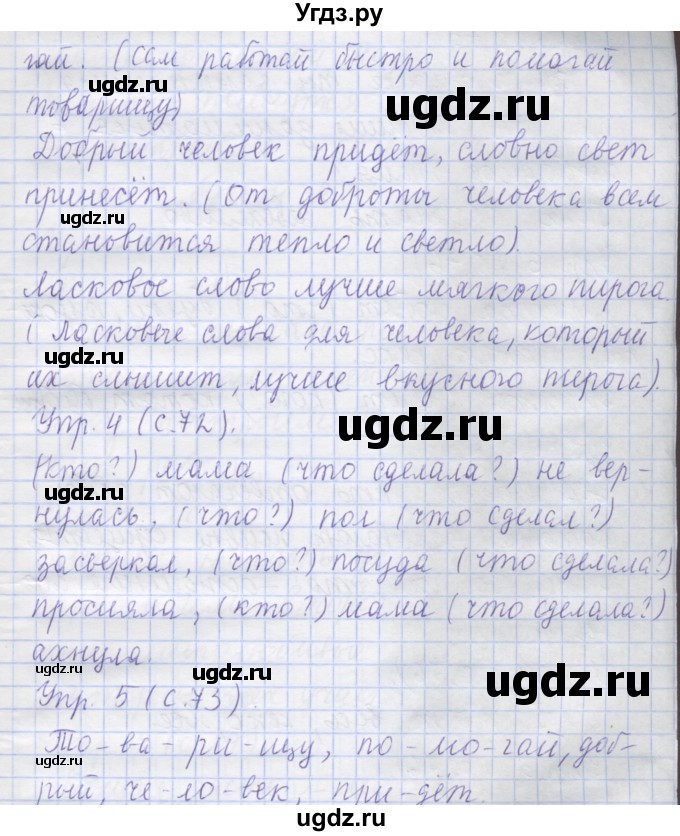 Угдз.ру
гай. (Сам работай быстро и помогай
товарищу)
Добрый человек придёт, словно свет
принесёт. (От доброты человека всем
становится тепло и светло).
Ласковое слово лучше мягкого пирога.
( Ласковые слова для человека, который
их слышит, лучше вкусного пирога).
Упр. 4 (с.72).
(кто?) мама (что сделала?) не вер-
нулась, (что?) пол (что сделал?)
засверкал, (что?) посуда (что сделала?)
просияла, (кто?) мама (что сделала?)
ахнула.
Упр. 5 (с.73).
То-ва-ри-щу, по-мо-гай, доб-
рый, че-ло-век, при-дёт.
ugdz.ru
ugdz.ru
ugdz.ru
ugdz.ru
ugdz.ru
ugdz.ru
ugdz.ru
ugdz.ru
ugdz.ru
ugdz.ru
ugdz.ru
ugdz.ru
ugdz.ru
ugdz.ru